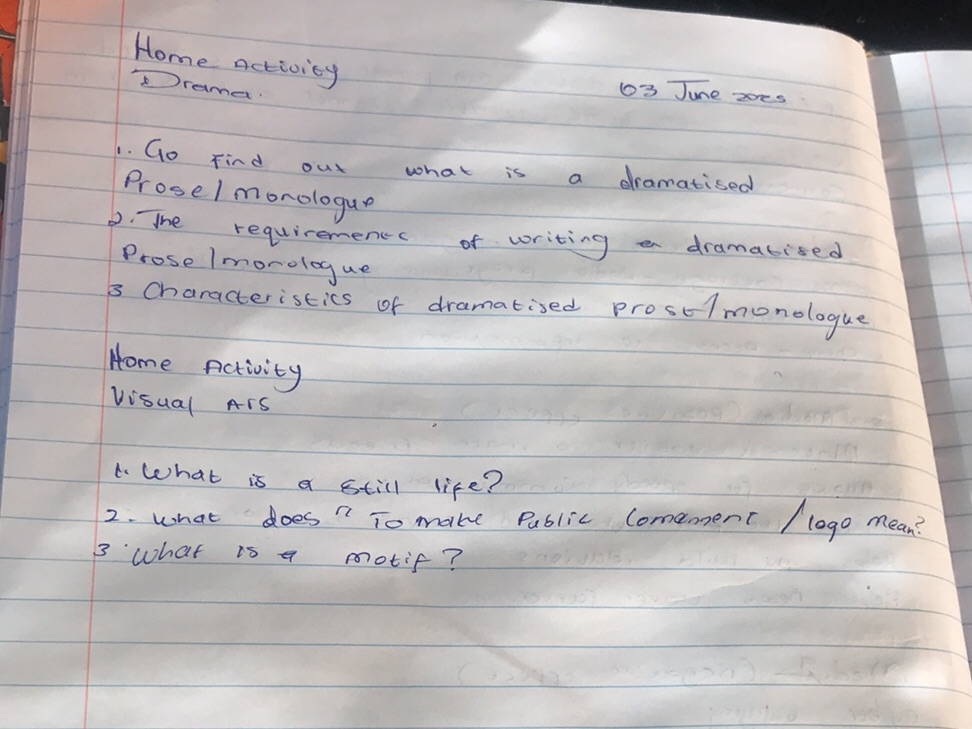 Home Activity
Drama.
03 June 2025
1. Go Find out what is a dramatised
Prose/monologue
2. The requirements of writing a dramatised
Prose/monologue
3 Characteristics of dramatised prose/monologue
Home Activity
Visual Ats
1. What is a still life?
2. What does " To make Public Comemnent / logo mean?
3 What is a motif?